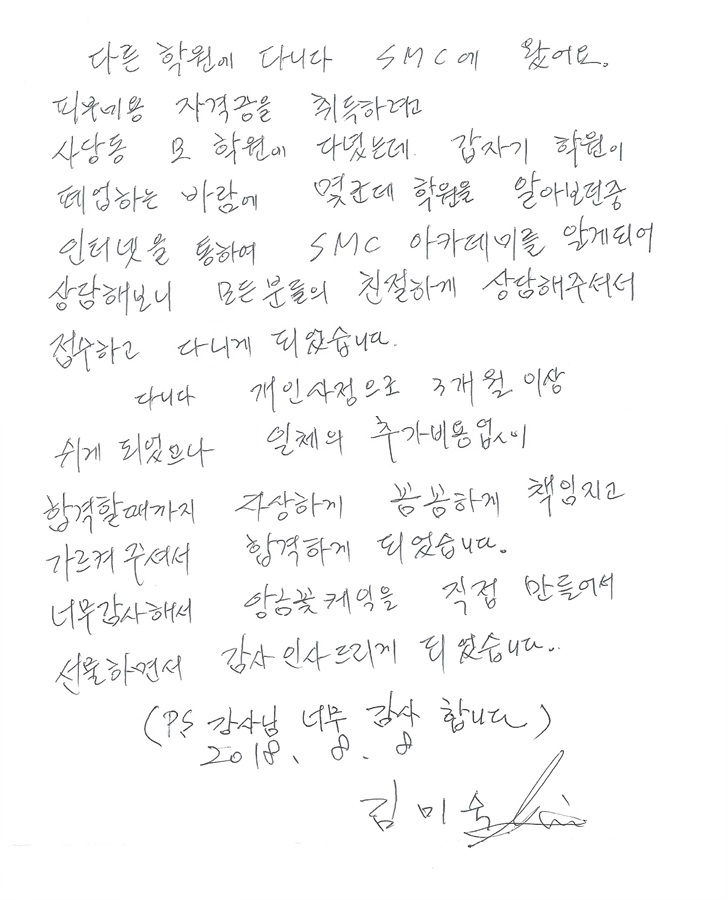 다른 학원에 다니다 SMC에 왔어요.
피부미용 자격증을 취득하려고
사당동 모 학원에 다녔는데. 갑자기 학원이
폐업하는 바람에 몇군데 학원을 알아보던중
인터넷을 통하여 SMC 아카데미를 알게되어
상담해보니 모든분들의 친절하게 상담해주셔서
접수하고 다니게 되었습니다.
다니다 개인사정으로 3개월 이상
쉬게 되었으나 일체의 추가비용없이
합격할때까지 자상하게 꼼꼼하게 책임지고
가르켜 주셔서 합격하게 되었습니다.
너무감사해서 앙금꽃케익을 직접 만들어서
선물하면서 감사인사드리게 되었습니다..
(P.S 강사님 너무 감사 합니다)
2018. 8. 8
김미숙